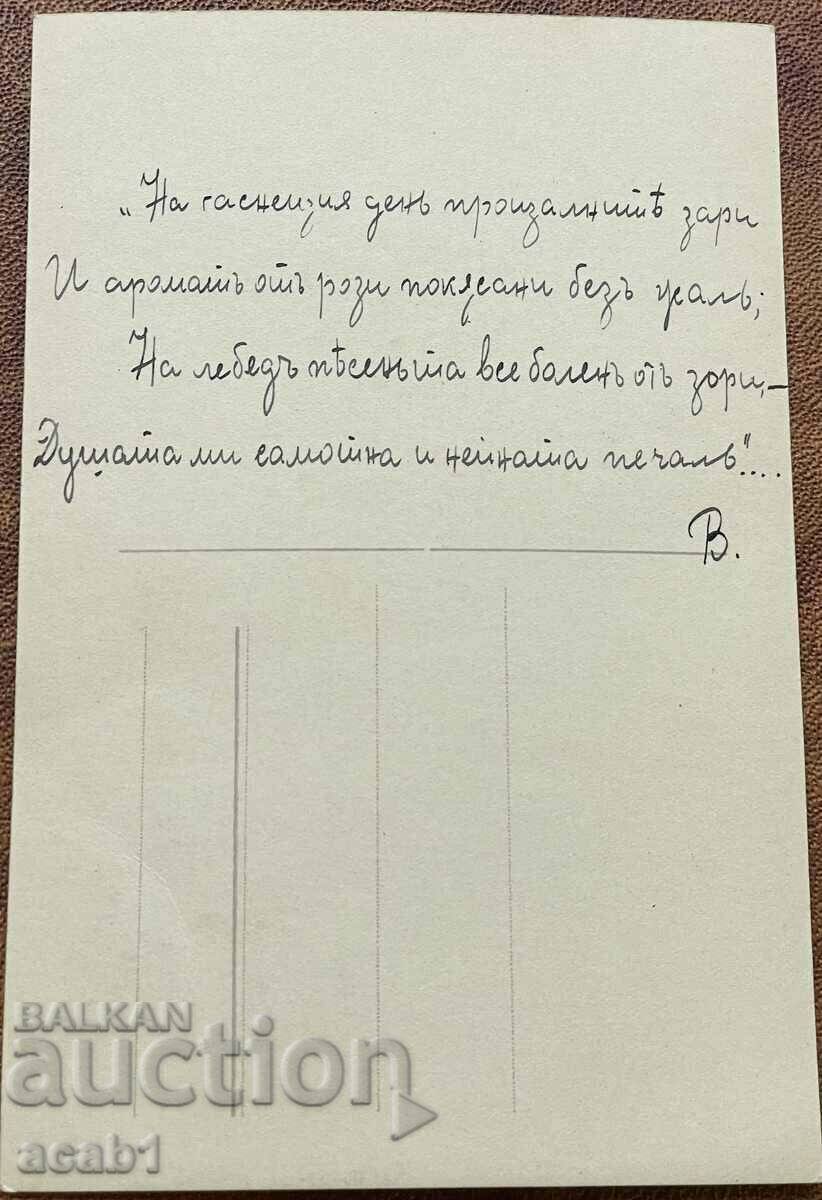 „На гаснещия день прощалнитѣ зари
И ароматъ отъ рози покѫсани безъ жаль;
На лебедъ пѣсеньта все болень отъ зори,–
Душата ми самотна и нейната печаль"....
В.
BALKAN
auction
acab1